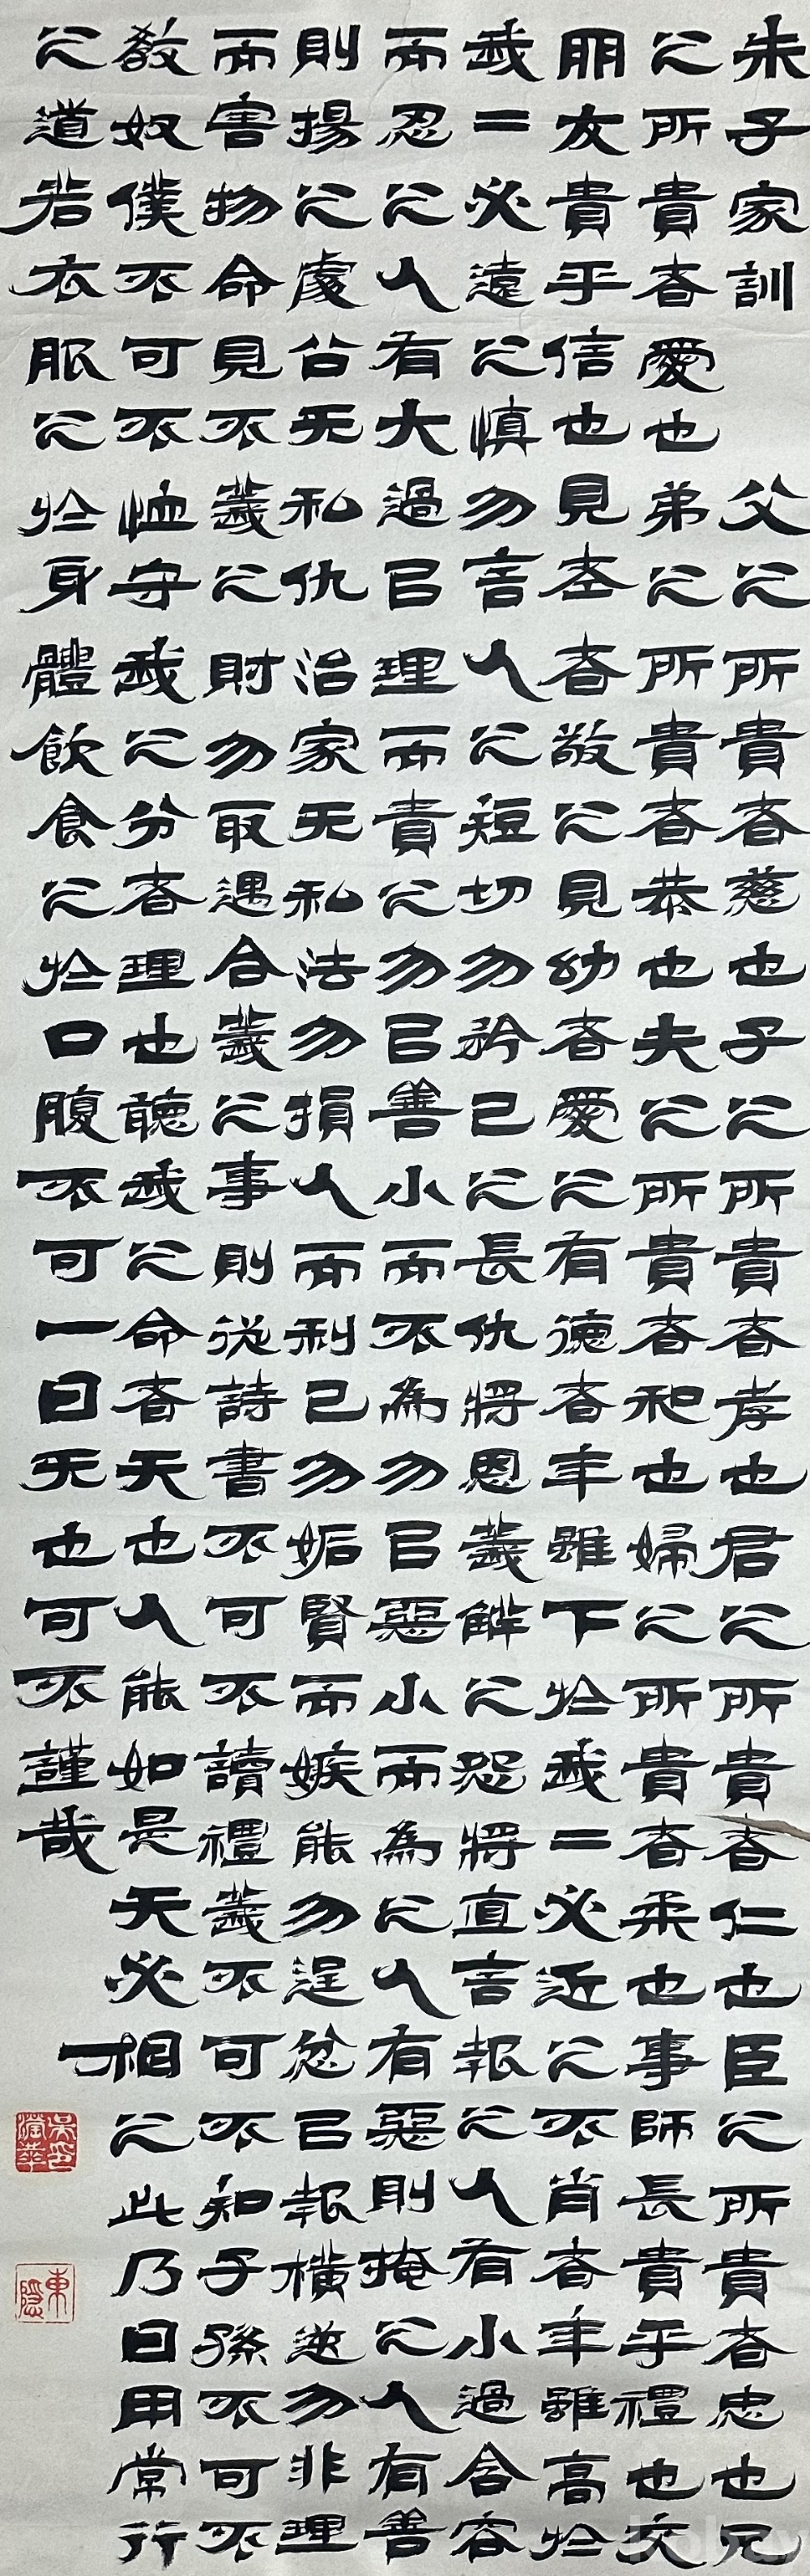 朱子家訓 父之所貴者慈也子之所貴者孝也君之所貴者仁也臣之所貴者忠也兄
之所貴者愛也弟之所貴者恭也夫之所貴者和也婦之所貴者柔也事師長貴乎禮也交
朋友貴乎信也見老者敬之見幼者愛之有德者年雖下於我二必近之不肖者年雖高於
我二必遠之慎勿言人之短切勿矜己之長仇將恩義解之怨將直言報之人有小過含容
而忍之人有大過㠯理而責之勿㠯善小而不為勿㠯惡小而為之人有惡則掩之人有善
則揚之處公无私仇治家无私法勿損人而利己勿妬賢而嫉能勿逞忿㠯報橫逆勿非理
而害物命見不義之財勿取遇合義之事則從詩書不可不讀禮義不可不知子孫不可不
教奴僕不可不恤守我之分者理也聽我之命者天也人能如是天必相之此乃日用常行
之道若衣服之於身體飲食之於口腹不可一日无也可不謹哉
東隱
kobay